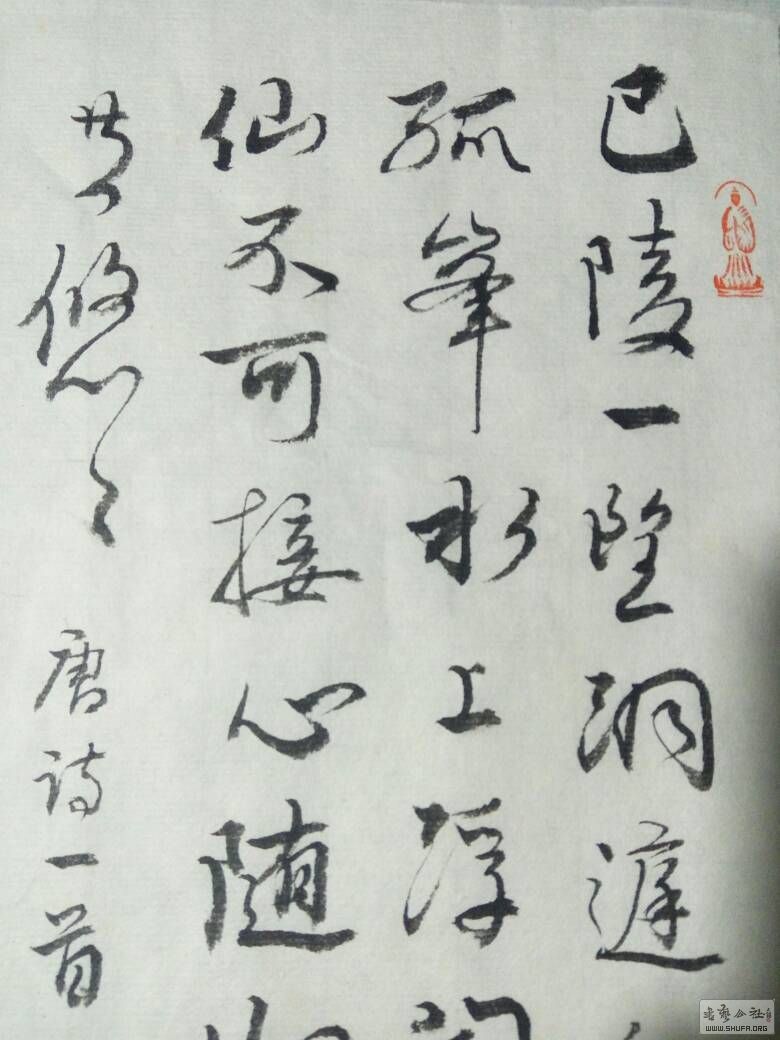 巴陵一望洞庭
孤峯水上浮
仙不可接心随
共悠々
唐诗一首
书艺公社
WWW.SHUFA.ORG